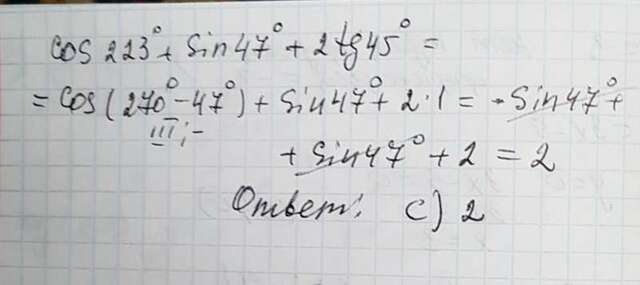 cos 223° + sin 47° + 2 tg 45° =
= cos(270° - 47°) + sin 47° + 2·1 = - sin 47° +
III; -
+ sin 47° + 2 = 2
Ответ: c) 2